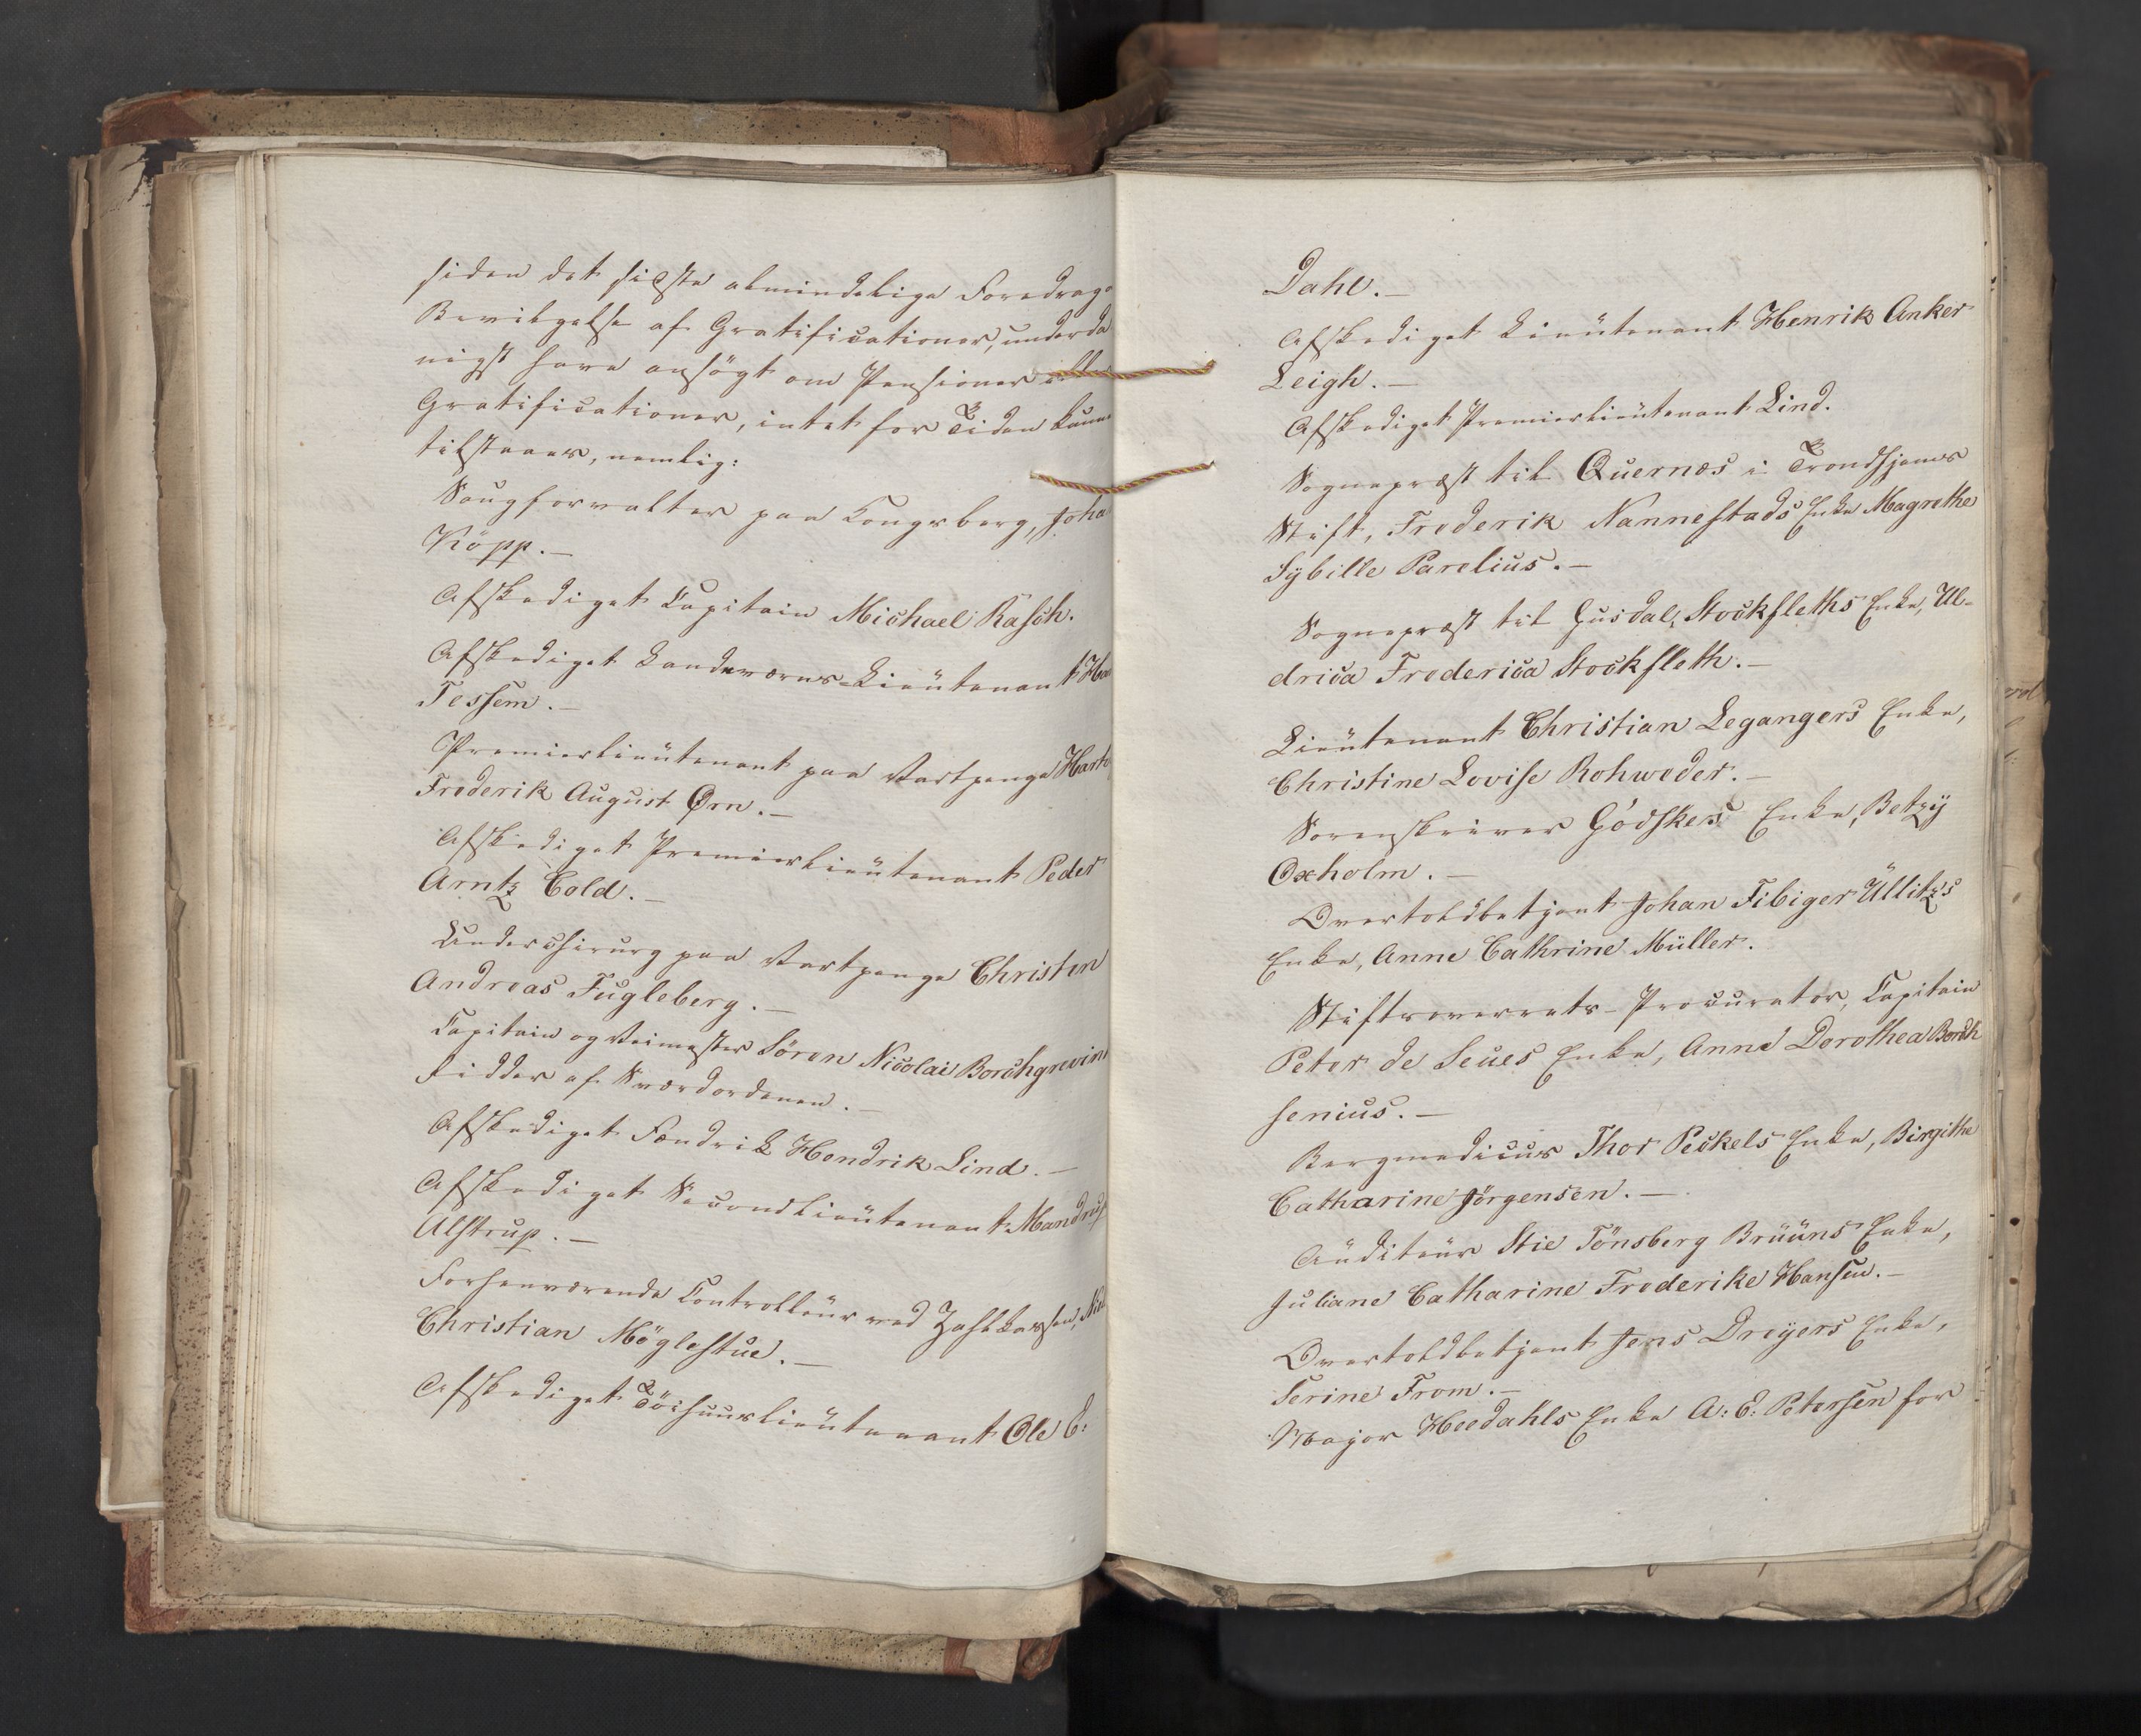 siden det sidste almindelige Foredrag o
Bevilgelse af Gratificationer, underda
nigst have ansögt om Pensioner eller
Gratificationer, intet for Tiden kunne
tilstaaes, nemlig:
Saugforvalter paa Kongsberg, Joha
Köpp. —
Afskediget Capitain Michael Räsch.
Afskediget Landeværns-Lieutenant Ha
Tessem. —
Premierlieutenant paa Vartpenge Hart
Frederik August Ørn. —
Afskediget Premierlieutenant Peder
Arntz Cold. —
Underchirurg paa Vartpenge Christen
Andreas Fugleberg. —
Capitain og Veimester Sören Nicolai Borchgrevin
Ridder af Sværdordenen. —
Afskediget Fændrik Hendrik Lind. —
Afskediget Secondlieutenant Mandrup
Alstrup. —
Forhenværende Controlleur ved Zahlkassen, Niel
Christian Möglestue. —
Afskediget Töihuuslieutenant Ole C:
Dahl. —
Afskediget Lieutenant Henrik Anker
Leigh. —
Afskediget Premierlieutenant Lind.
Sognepræst til Quernæs i Trondhjems
Stift, Frederik Nannestads Enke Magrethe
Sybille Parelius. —
Sognepræst til Gusdal, Stockfleths Enke, Ul-
drica Frederica Stockfleth. —
Lieutenant Christian Legangers Enke,
Christine Lovise Rohweder. —
Sorenskriver Gödskes Enke, Betzy
Oxholm. —
Overtoldbetjent Johan Fibiger Üllitz's
Enke, Anne Cathrine Müller.
Stiftsoverrets-Procurator, Capitain
Peter de Seues Enke, Anne Dorothea Borch
senius. —
Bergmedicus Thor Peckels Enke, Birgithe
Catharine Jörgensen. —
Auditeur Stie Tönsberg Bruuns Enke,
Juliane Catharine Frederike Hansen. —
Overtoldbetjent Jens Dreyers Enke,
Serine From. —
Major Heedahls Enke A: E: Petersen for